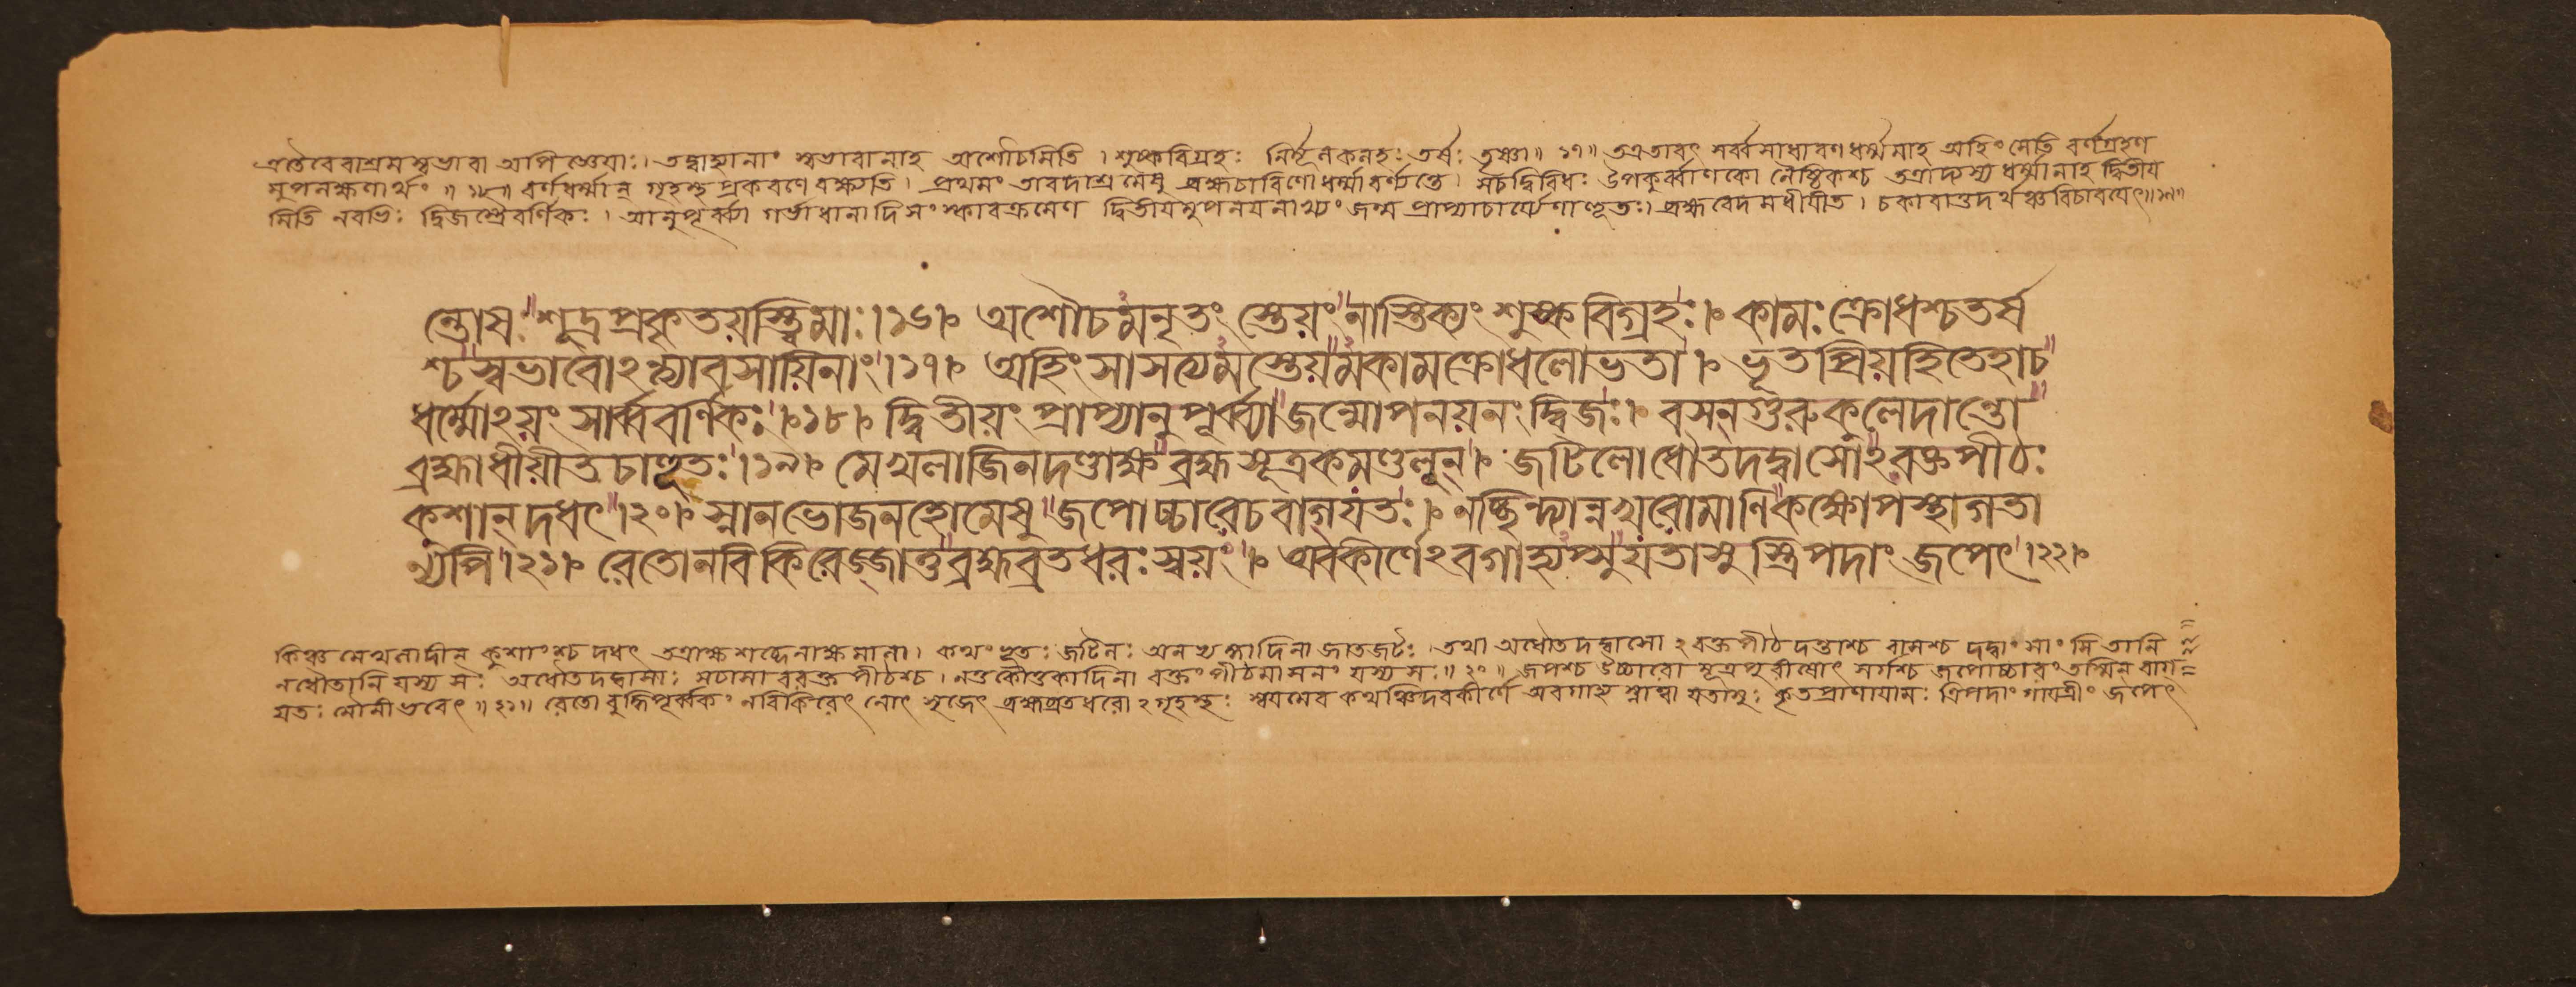 এতেবেবাশ্রমস্বভাবা অপি জ্ঞেয়াঃ। তদ্বাহ্যানাং স্বভাবানাহ অশৌচমিতি । শুষ্কবিগ্রহঃ তর্ষঃ তৃষ্ণা॥ ১৭॥ সর্ব্বসাধারণধর্ম্মমাহ অহিংসেতি বর্ণগ্রহণ
মুপলক্ষণার্থং ॥ ১৮॥ বর্ণধর্ম্মান্ গৃহস্থপ্রকরণে বক্ষ্যতি। প্রথমং তাবদাশ্রমেষু ব্রহ্মচারিণো ধর্ম্মা বর্ণ্যন্তে। সচ দ্বিবিধঃ উপকুর্ব্বাণকো নৈষ্ঠিকশ্চ তত্রাদ্যস্য ধর্ম্মানাহ দ্বিতীয়
মিতি নবভিঃ দ্বিজস্ত্রৈবর্ণিকঃ । আনুপূর্ব্ব্যা গর্ভাধানাদিসংস্কারক্রমেণ দ্বিতীয়মুপনয়নাখ্যং জন্ম প্রাপ্যাচার্য্যেণাহূতঃ। ব্রহ্মবেদমধীয়ীত। চকারাত্তদর্থঞ্চ বিচারয়েৎ॥১৯॥
ন্তোষঃ শূদ্রপ্রকৃতয়স্ত্বিমাঃ।১৬। অশৌচমনৃতং স্তেয়ং নাস্তিক্যং শুষ্কবিগ্রহঃ। কামঃ ক্রোধশ্চতর্ষ
শ্চ স্বভাবোঽন্ত্যাবসায়িনাং।১৭। অহিংসাসত্যমস্তেয়মকামক্রোধলোভতা। ভূতপ্রিয়হিতেহাচ
ধর্ম্মোঽয়ং সার্ব্ববর্ণিকঃ।১৮। দ্বিতীয়ং প্রাপ্যানুপূর্ব্ব্যাজন্মোপনয়নং দ্বিজঃ। বসন্গুরুকুলেদান্তো
ব্রহ্মাধীয়ীতচাহূতঃ।১৯। মেখলাজিনদণ্ডাক্ষ ব্রহ্মসূত্রকমণ্ডলূন্। জটিলোধৌতদদ্বাসোঽরক্তপীঠঃ
কুশান্ দধৎ।২০। স্নানভোজনহোমেষু জপোচ্চারেচবাগ্যতঃ। নচ্ছিন্দ্যান্নখরোমাণিকক্ষোপস্থাগতা
ন্যপি।২১। রেতোনবিকিরেজ্জাতুব্রহ্মব্রতধরঃ স্বয়ং। অবকীর্ণেঽবগাহ্যাপ্সুযতাসুস্ত্রিপদাং জপেৎ।২২।
কিঞ্চ মেখলাদীন্ কুশাংশ্চ দধৎ তত্রাক্ষশব্দেনাক্ষমালা। কথংভূতঃ জটিলঃ জাতজটঃ। তথা অধৌতদদ্বাসো ঽরক্তপীঠঃ দন্তাশ্চ বাসশ্চ
নধৌতানি যস্য সঃ অধৌতদদ্বাসাঃ যস্য সঃ॥ ২০॥ জপশ্চ উচ্চারো মূত্রপুরীষোৎসর্গশ্চ জপোচ্চারং তস্মিন্ বাগ্
যতঃ মৌনীভবেৎ ॥ ২১॥ রেতো বুদ্ধিপূর্ব্বকং নবিকিরেৎ নোৎসৃজেৎ ব্রহ্মব্রতধরো ঽগৃহস্থঃ স্বয়মেব কথঞ্চিদবকীর্ণে অবগাহ্য স্নাত্বা যতাসুঃ কৃতপ্রাণায়ামঃ ত্রিপদাং গায়ত্রীং জপেৎ